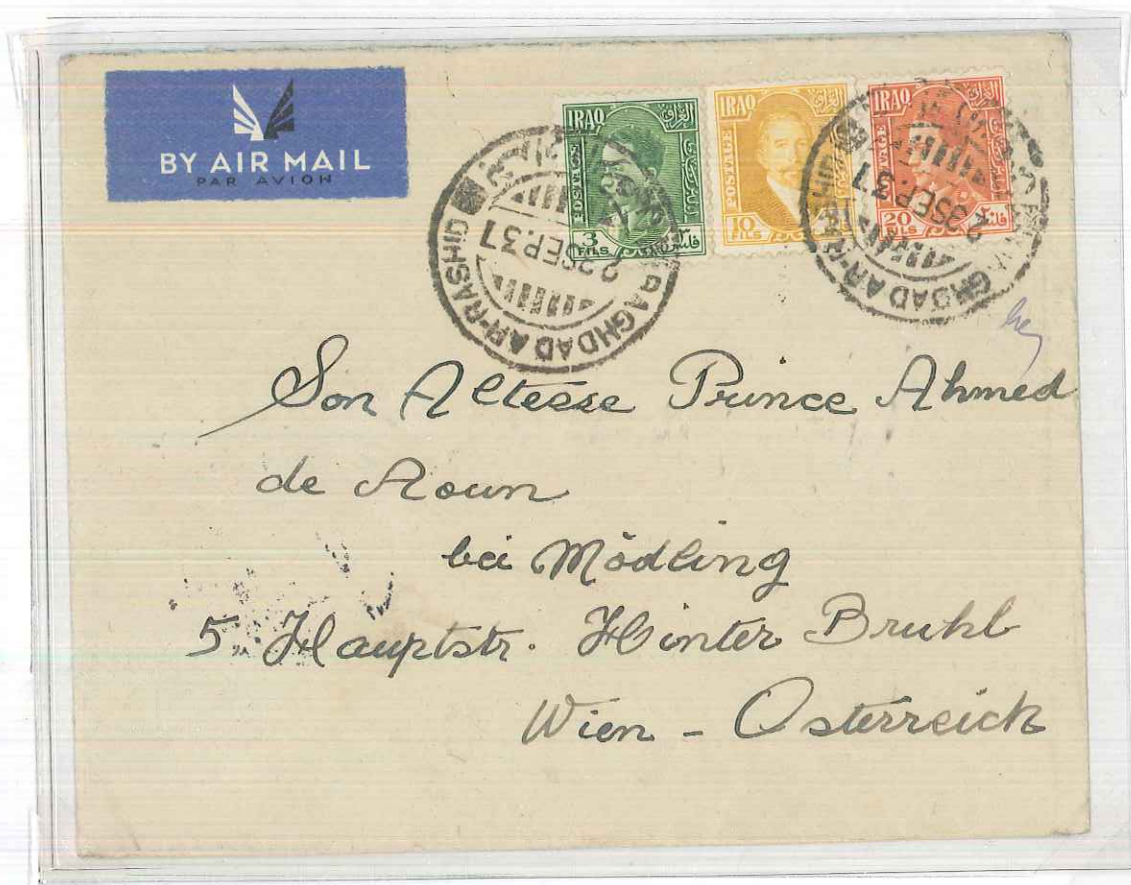 BY AIR MAIL
PAR AVION
IRAQ العراق
POSTAGE
3 FILS فلس ٣
IRAQ العراق
POSTAGE
10 FILS
IRAQ العراق
POSTAGE
20 FILS
BAGHDAD AR-RASHID
2 SEP. 37
GHDAD AR-RASHID
2 SEP. 37
Son Altesse Prince Ahmed
de Aoun
bei Mödling
5. Hauptstr. Hinter Bruhl
Wien - Osterreich